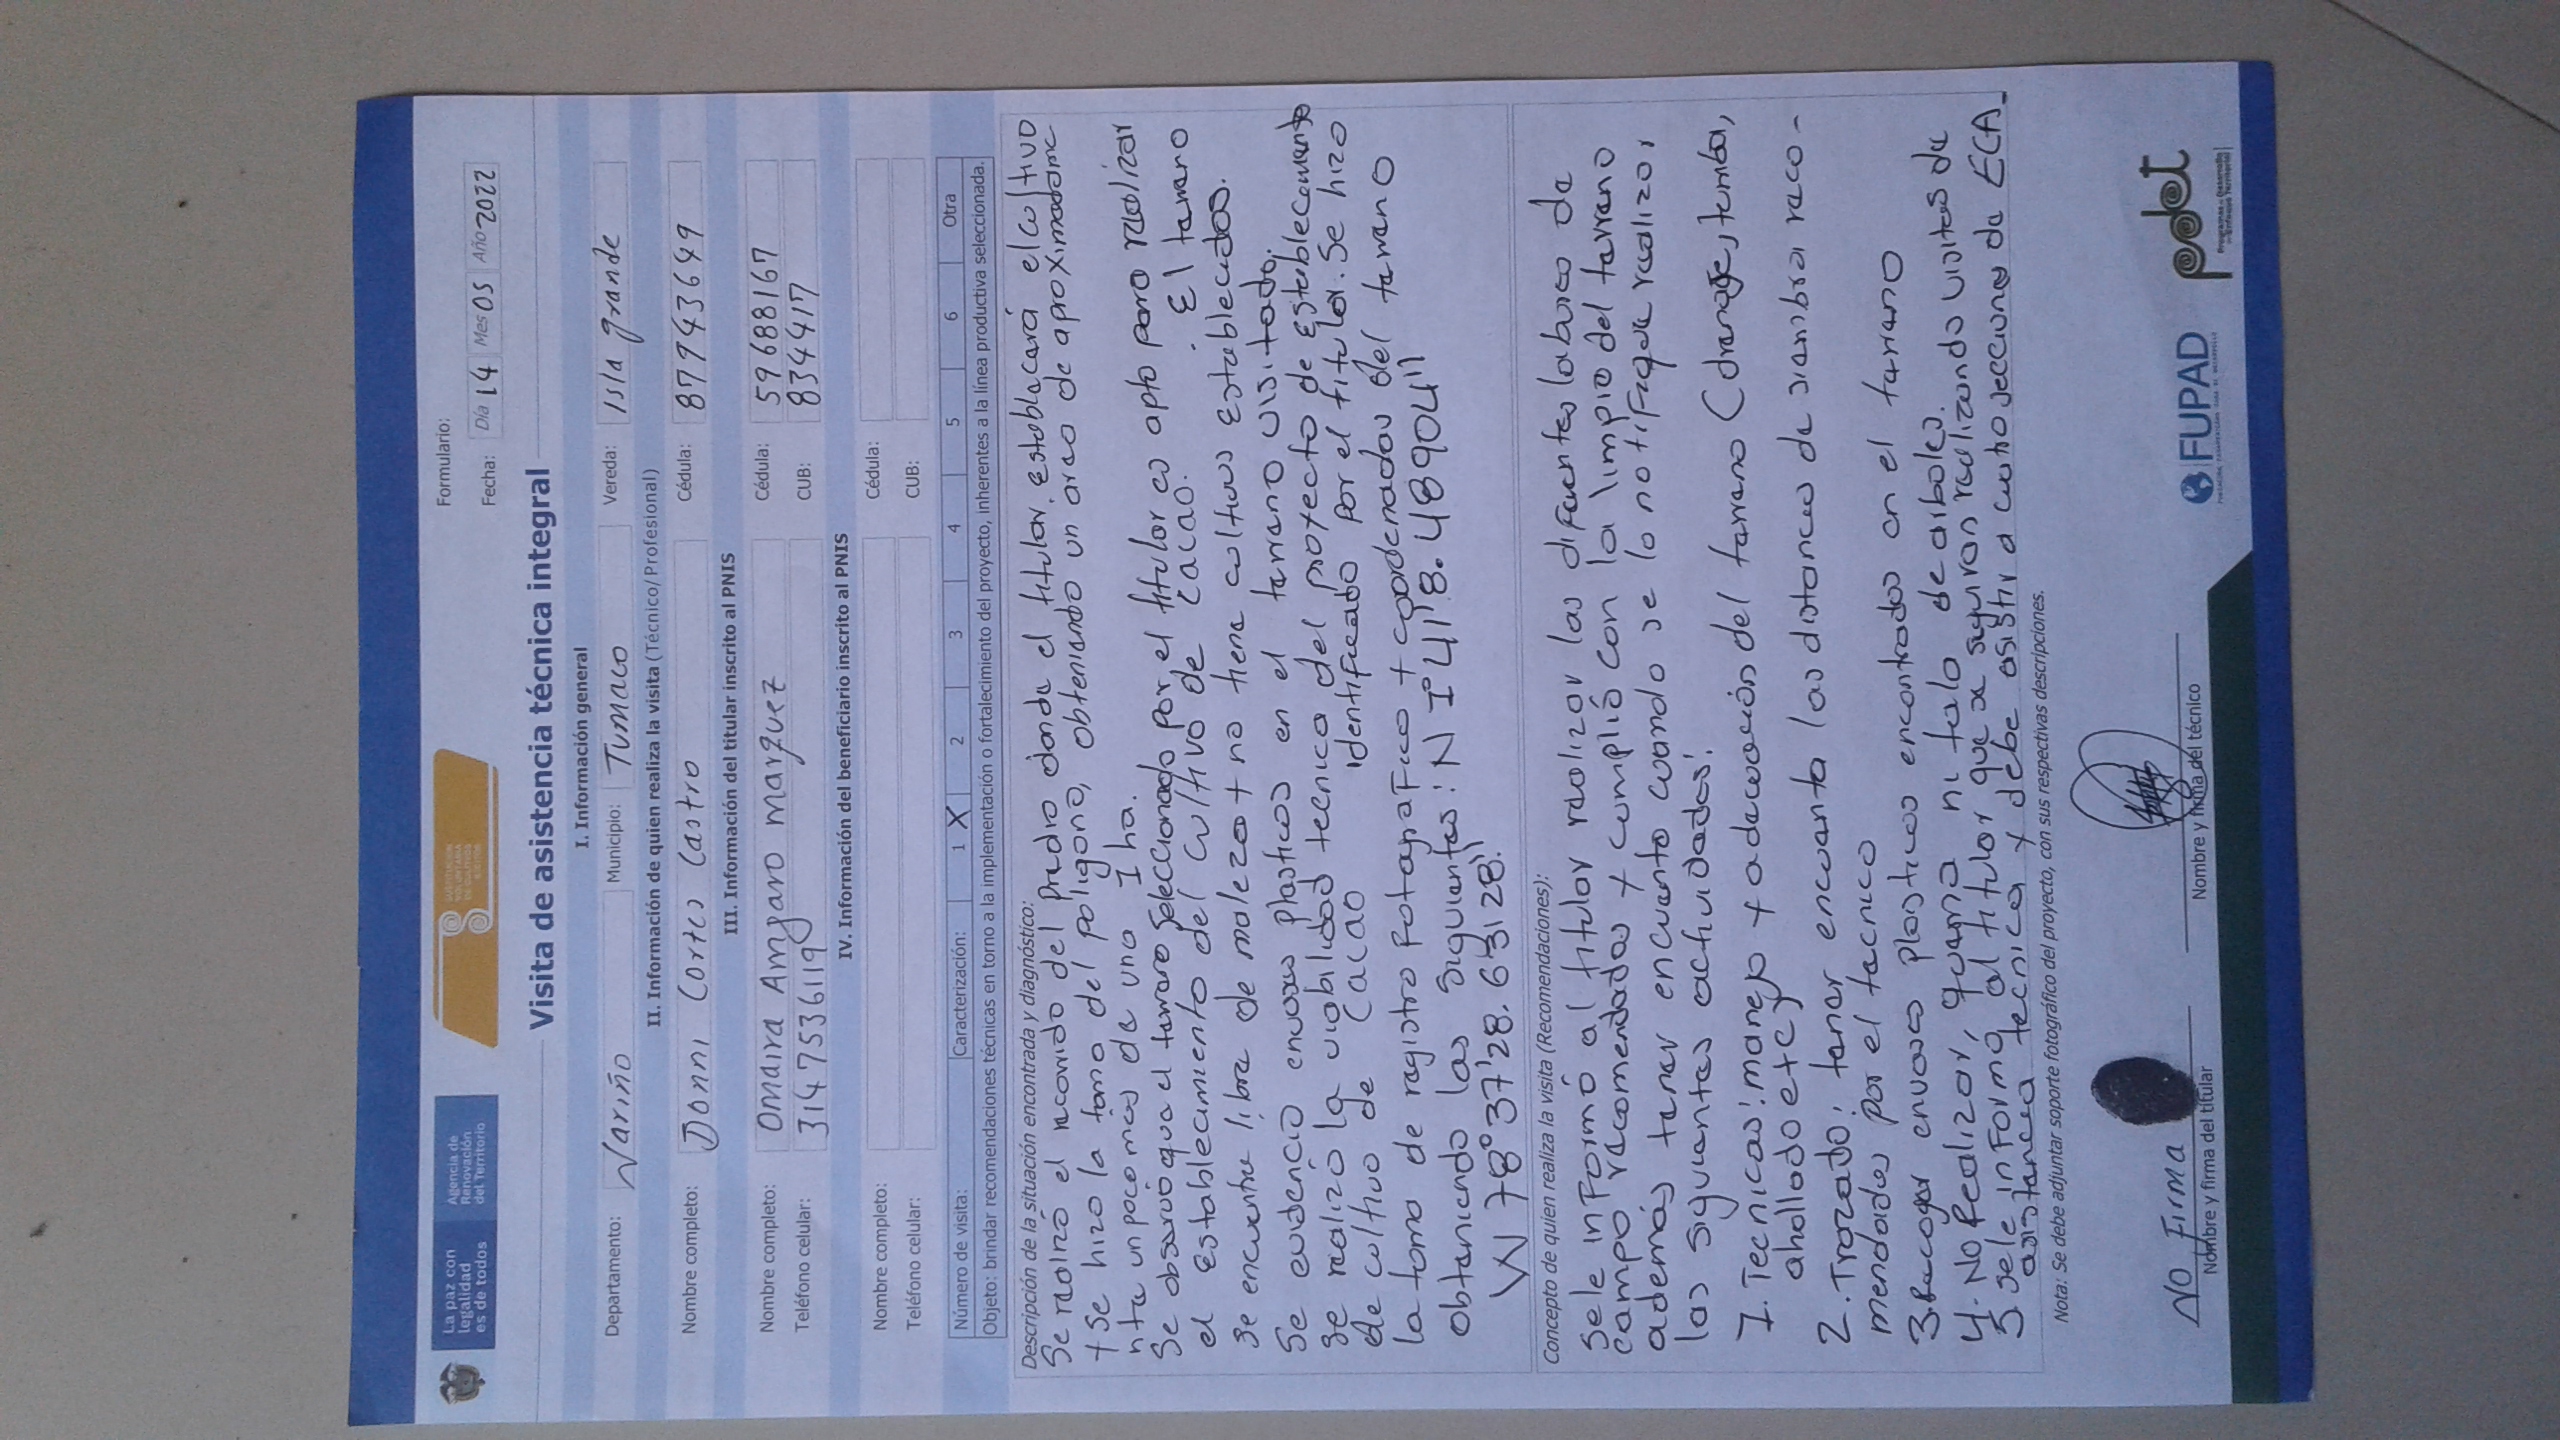 La paz con
legalidad
es de todos
Agencia de
Renovación
del Territorio
SUSTITUCIÓN
VOLUNTARIA
DE CULTIVOS
ILÍCITOS
Formulario:
Fecha: Día 14 Mes 05 Año 2022
Visita de asistencia técnica integral
I. Información general
Departamento: Nariño Municipio: Tumaco Vereda: Isla grande
II. Información de quien realiza la visita (Técnico/Profesional)
Nombre completo: Donni Cortes Castro Cédula: 87943649
III. Información del titular inscrito al PNIS
Nombre completo: Omaira Angaro marquez Cédula: 59688167
Teléfono celular: 3147536119 CUB: 834417
IV. Información del beneficiario inscrito al PNIS
Nombre completo: Cédula:
Teléfono celular: CUB:
Número de visita: Caracterización: 1 X 2 3 4 5 6 Otra
Objeto: brindar recomendaciones técnicas en torno a la implementación o fortalecimiento del proyecto, inherentes a la línea productiva seleccionada.
Descripción de la situación encontrada y diagnóstico:
Se realizó el recorrido del predio donde el titular establecerá el cultivo
y se hizo la toma del poligono, obteniendo un area de aproximadame
nte un poco mas de una 1 ha.
Se observó que el terreno seleccionado por el titular es apto para realizar
el establecimiento del cultivo de cacao. El terreno
se encuentra libre de maleza y no tiene cultivos establecidos.
Se evidenció envases plasticos en el terreno visitado.
se realizo la viabilidad tecnica del proyecto de establecimiento
de cultivo de cacao identificado por el titular. Se hizo
la toma de registro fotografico y coordenadas del terreno
obteniendo las siguientes: N 1°41'18.48904"
W 78°37'28.63128".
Concepto de quien realiza la visita (Recomendaciones):
Se le informó al titular realizar las diferentes labores de
campo recomendadas y cumplió con la limpia del terreno
además tener encuenta cuando se lo notifique realizar
las siguientes actividades:
1. Tecnicas: manejo y adecuación del terreno (drenajes, tumba,
ahollado etc)
2. Trazado: tener encuenta las distancias de siembra reco-
mendadas por el tecnico
3. Recoger envases plasticos encontrados en el terreno
4. No Realizar, quema ni tala de arboles.
5 se le informó al titular que se seguiran realizando visitas de
asistencia tecnica y debe asistir a cuatro secciones de ECA
Nota: Se debe adjuntar soporte fotográfico del proyecto, con sus respectivas descripciones.
No Firma
Nombre y firma del titular
Nombre y firma del técnico
FUPAD
pdet
Programas de Desarrollo
con Enfoque Territorial